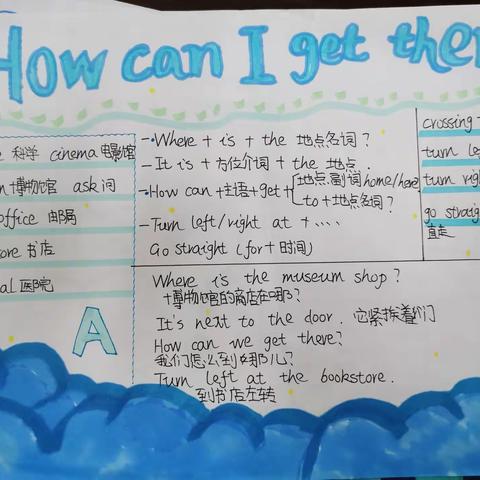 How can I get ther
科学 cinema 电影馆
博物馆 ask 问
office 邮局
ore 书店
al 医院
A
- Where + is + the 地点名词?
- It is + 方位介词 + the 地点.
- How can + 主语 + get + { 地点副词 home/here
to + 地点名词?
- Turn left/right at + ....
Go straight (for + 时间)
crossing
turn le
turn righ
go straig
直走
Where is the museum shop?
博物馆的商店在哪?
It's next to the door. 它紧挨着门
How can we get there?
我们怎么到哪儿?
Turn left at the bookstore.
到书店左转